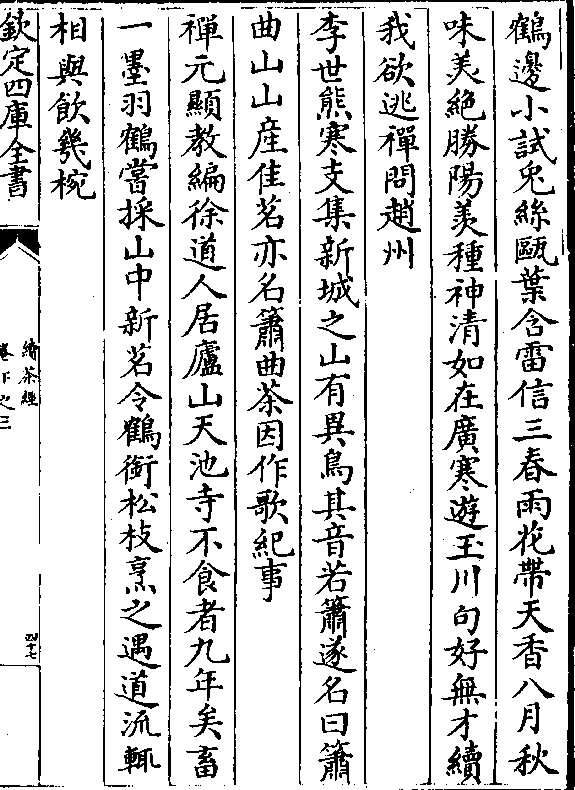 鶴邊小試兎絲甌葉含雷信三春雨花帶天香八月秋
味美絶勝陽羡種神清如在廣寒遊玉川句好無才續
我欲逃禪問趙州
李世熊寒支集新城之山有異鳥其音若簫遂名曰簫
曲山山産佳茗亦名簫曲茶因作歌紀事
禪元顯教編徐道人居廬山天池寺不食者九年矣畜
一墨羽鶴嘗採山中新茗令鶴銜松枝烹之遇道流輙
相與飲㡬椀
欽定四庫全書
續茶經
卷下之三
四十七